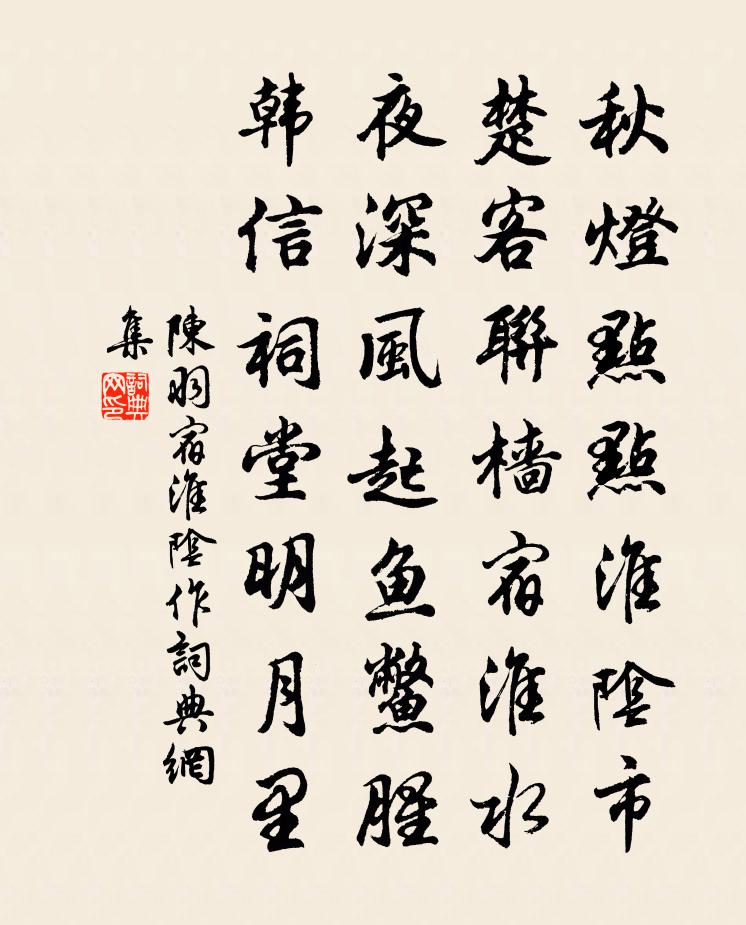 秋燈點點淮陰市
楚客聯檣宿淮水
夜深風起魚鱉腥
韩信祠堂明月里
陳羽宿淮陰作詞典網
集
詞典
网印